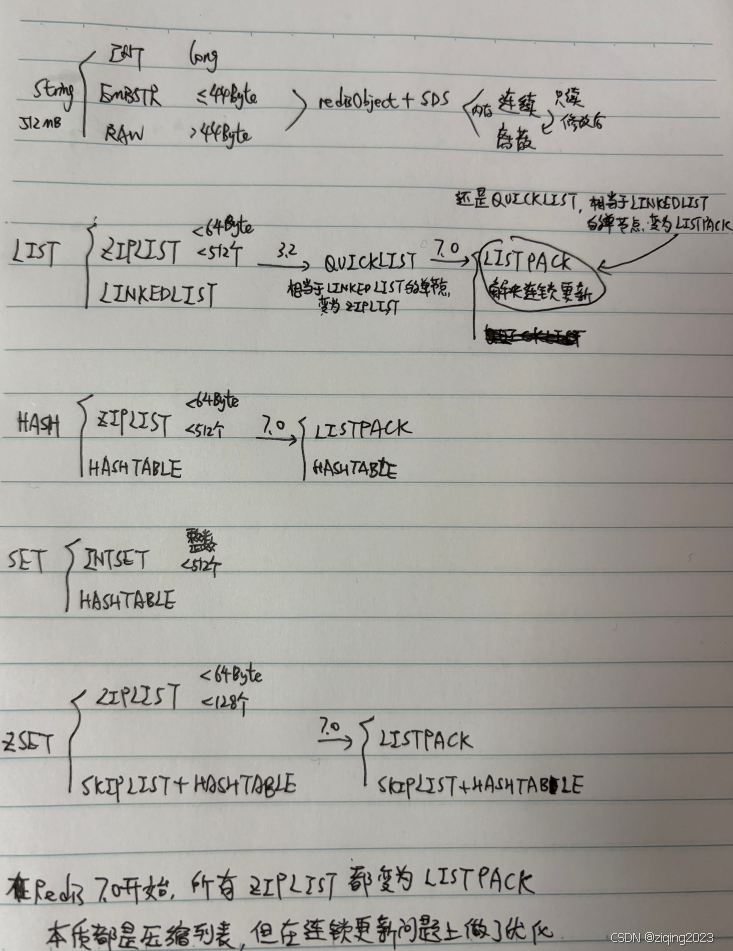 INT long
String EMBSTR ≤44Byte redisObject + SDS 内存 连续 只读
512MB RAW >44Byte 离散 修改后
还是QUICKLIST, 相当于LINKEDLIST
的单节点, 变为LISTPACK
<64Byte
LIST ZIPLIST <512个 3.2 QUICKLIST 7.0 LISTPACK
LINKEDLIST 相当于LINKEDLIST的单节点, 解决连锁更新
变为ZIPLIST
<64Byte
HASH ZIPLIST <512个 7.0 LISTPACK
HASHTABLE HASHTABLE
整数
SET INTSET <512个
HASHTABLE
<64Byte
ZIPLIST <128个
ZSET 7.0 LISTPACK
SKIPLIST+HASHTABLE SKIPLIST+HASHTABLE
在Redis 7.0开始, 所有ZIPLIST都变为LISTPACK
本质都是压缩列表, 但在连锁更新问题上做了优化
CSDN @ziqing2023